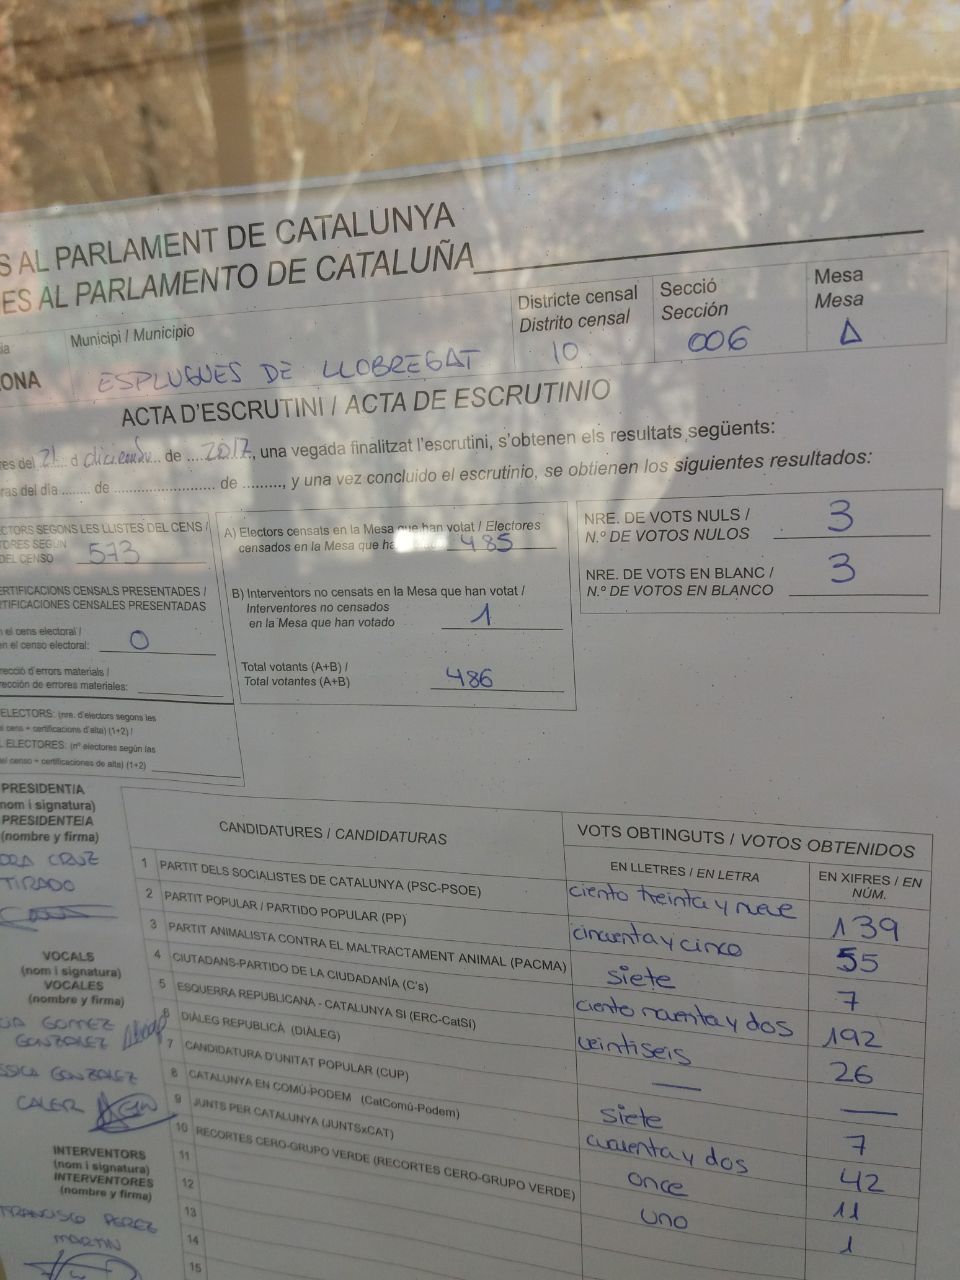 S AL PARLAMENT DE CATALUNYA
ES AL PARLAMENTO DE CATALUÑA
Municipi / Municipio
ONA ESPLUGUES DE LLOBREGAT
Districte censal
Distrito censal
10
Secció
Sección
006
Mesa
Mesa
A
ACTA D'ESCRUTINI / ACTA DE ESCRUTINIO
res del 21 d diciembre de 2017, una vegada finalitzat l'escrutini, s'obtenen els resultats següents:
ras del día ........ de ........................ de .........., y una vez concluido el escrutinio, se obtienen los siguientes resultados:
CTORS SEGONS LES LLISTES DEL CENS /
TORES SEGÚN
DEL CENSO 573
ERTIFICACIONS CENSALS PRESENTADES /
TIFICACIONES CENSALES PRESENTADAS
n el cens electoral /
en el censo electoral: 0
rrecció d'errors materials /
rección de errores materiales:
ELECTORS: (nre. d'electors segons les
l cens + certificacions d'alta) (1+2) /
L ELECTORES: (nº electores según las
del censo + certificaciones de alta) (1+2)
A) Electors censats en la Mesa que han votat / Electores
censados en la Mesa que ha 485
B) Interventors no censats en la Mesa que han votat /
Interventores no censados
en la Mesa que han votado 1
Total votants (A+B) /
Total votantes (A+B) 486
NRE. DE VOTS NULS /
N.º DE VOTOS NULOS 3
NRE. DE VOTS EN BLANC /
N.º DE VOTOS EN BLANCO 3
PRESIDENT/A
(nom i signatura)
PRESIDENTE/A
(nombre y firma)
DRA CRUZ
TIRADO
VOCALS
(nom i signatura)
VOCALES
(nombre y firma)
GOMEZ
GONZALEZ
SSICA GONZALEZ
CALER
INTERVENTORS
(nom i signatura)
INTERVENTORES
(nombre y firma)
FRANCISCO PEREZ
MARTIN
CANDIDATURES / CANDIDATURAS
VOTS OBTINGUTS / VOTOS OBTENIDOS
EN LLETRES / EN LETRA
EN XIFRES / EN
NÚM.
1 PARTIT DELS SOCIALISTES DE CATALUNYA (PSC-PSOE) ciento treinta y nueve 139
2 PARTIT POPULAR / PARTIDO POPULAR (PP) cincuenta y cinco 55
3 PARTIT ANIMALISTA CONTRA EL MALTRACTAMENT ANIMAL (PACMA) siete 7
4 CIUTADANS-PARTIDO DE LA CIUDADANÍA (C's) ciento noventa y dos 192
5 ESQUERRA REPUBLICANA - CATALUNYA SÍ (ERC-CatSí) veintiseis 26
6 DIÀLEG REPUBLICÀ (DIÀLEG) — —
7 CANDIDATURA D'UNITAT POPULAR (CUP) siete 7
8 CATALUNYA EN COMÚ-PODEM (CatComú-Podem) cuarenta y dos 42
9 JUNTS PER CATALUNYA (JUNTSxCAT) once 11
10 RECORTES CERO-GRUPO VERDE (RECORTES CERO-GRUPO VERDE) uno 1
11
12
13
14
15